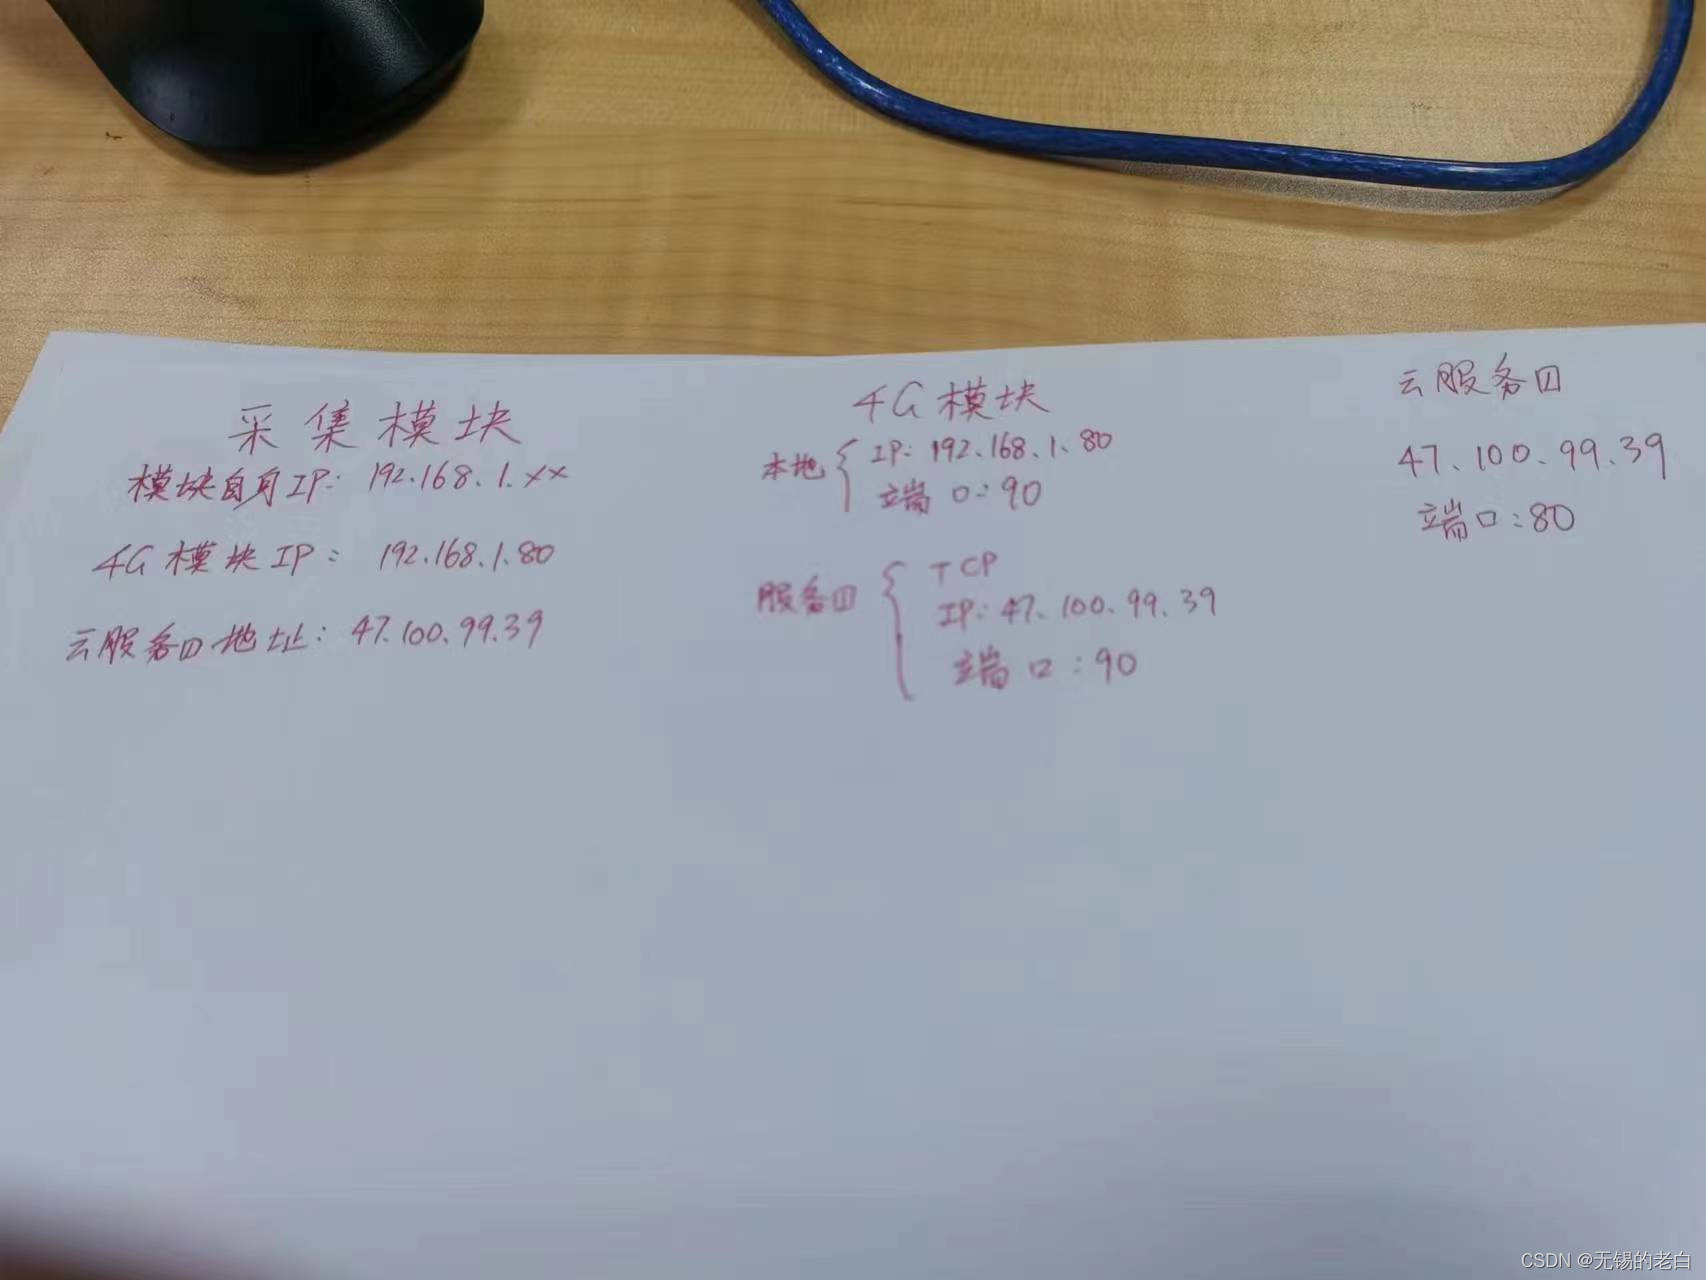 采集模块
模块自身IP: 192.168.1.xx
4G模块IP: 192.168.1.80
云服务口地址: 47.100.99.39
4G模块
本地 { IP: 192.168.1.80
端口: 90
服务口 { TCP
IP: 47.100.99.39
端口: 90
云服务口
47.100.99.39
端口: 80
CSDN @无锡的老白